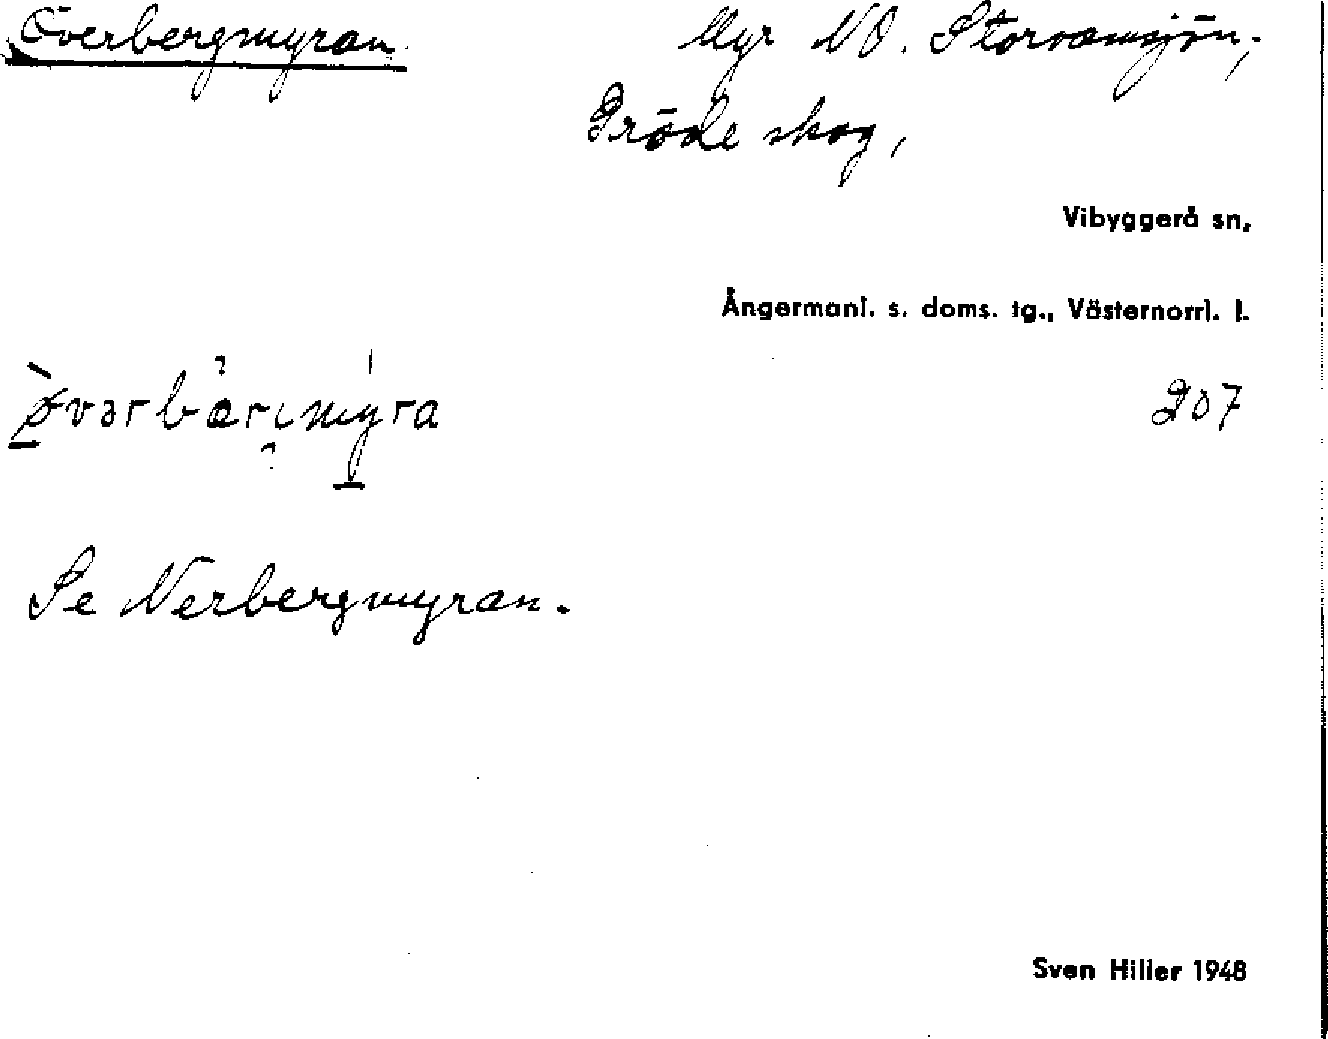 Överbergmyran Myr NO. Storvamsjön,
Gröde skog,
Vibyggerå sn,
Ångermanl. s. doms. tg., Västernorrl. l.
207
Se Nerbergmyran.
Sven Hiller 1948